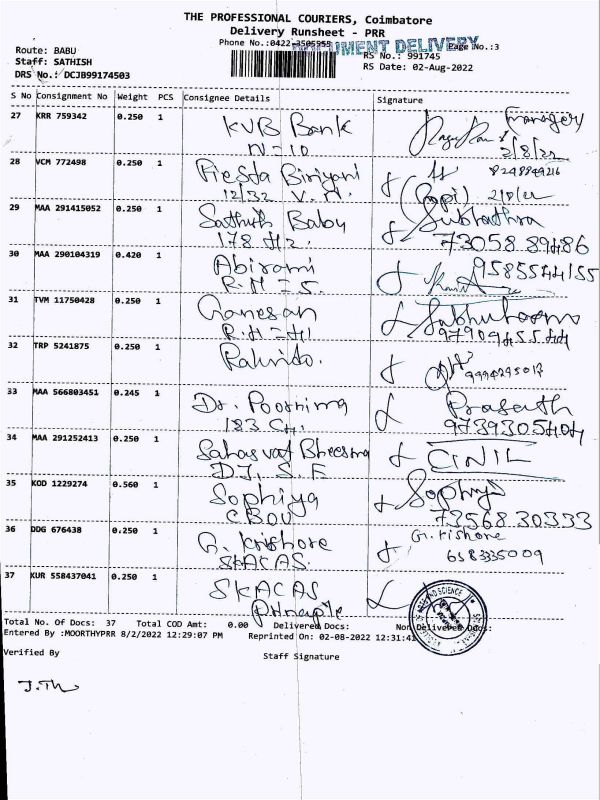 THE PROFESSIONAL COURIERS, Coimbatore
Delivery Runsheet - PRR
Phone No.:0422-3505955
DOCUMENT DELIVERY
Page No.:3
Route: BABU
Staff: SATHISH
DRS No.: DCJB99174503
RS No.: 991745
RS Date: 02-Aug-2022
S No Consignment No Weight PCS Consignee Details Signature
27 KRR 759342 0.250 1 KVB Bank Manager
N=10 2/8/22
28 VCM 772498 0.250 1 Fiesta Biriyani 8248849216
12/32 V.N. (Gopi) 2/8/22
29 MAA 291415052 0.250 1 Sathish Babu Subhathra
178 H2. 73058 89486
30 MAA 290104319 0.420 1 Abirami 9585544155
R.N=5.
31 TVM 11750428 0.250 1 Ganesan
R.H=H1 9790945544
32 TRP 5241875 0.250 1
33 MAA 566803451 0.245 1 Dr. Poornima Prasath
183 CH. 9739305404
34 MAA 291252413 0.250 1 CINIL
35 KOD 1229274 0.560 1 Sophiya Sophiya
73568 30333
36 DDG 676438 0.250 1 G. Krishore G. Kishore
SKACAS. 6383335009
37 KUR 558437041 0.250 1 SKACAS
Total No. Of Docs: 37 Total COD Amt: 0.00 Delivered Docs: Non Delivered Docs:
Entered By :MOORTHYPRR 8/2/2022 12:29:07 PM Reprinted On: 02-08-2022 12:31:41
Verified By Staff Signature